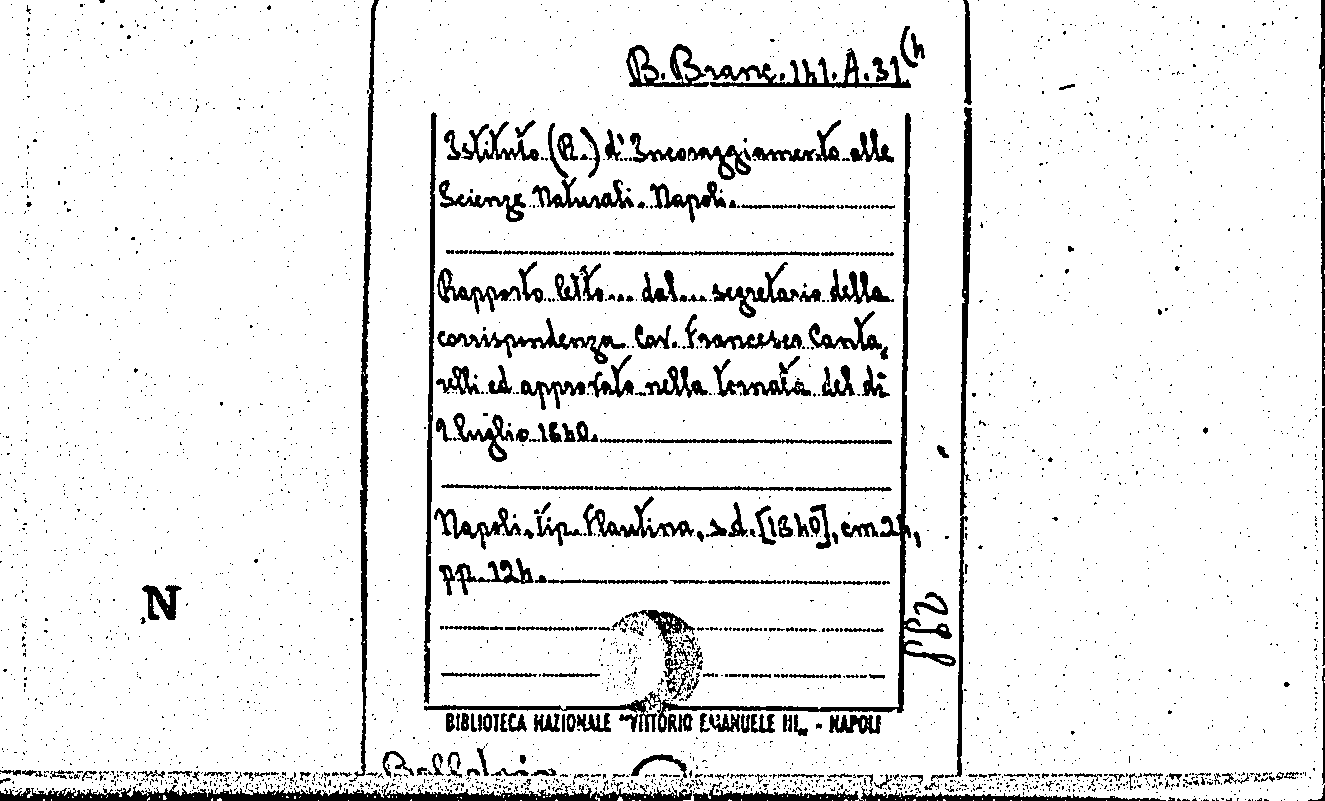 B. Branc. 141. A. 31(4
Istituto (R.) d'Incoraggiamento alle
Scienze Naturali. Napoli.
Rapporto letto... dal... segretario della
corrispondenza Cav. Francesco Canta,
relli ed approvato nella tornata del dì
2 luglio 1840.
Napoli, tip. Flautina, s.d. [1840], cm. 24,
pp. 124.
N
BIBLIOTECA NAZIONALE "VITTORIO EMANUELE III" - NAPOLI